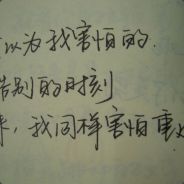 以为我害怕的.
告别的时刻
，我同样害怕重